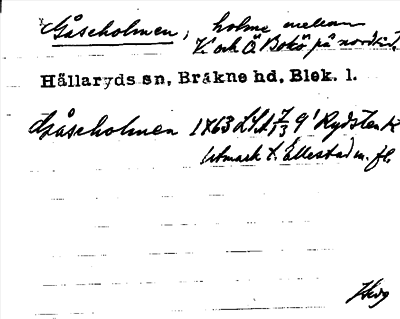 Gåseholmen, holme mellan
V. och Ö Bokö på nordsid.
Hällaryds sn, Bräkne hd, Blek. l.
Gåseholmen 1863 LSA 7/13 9'
Utmark t. Ellestad m. fl.